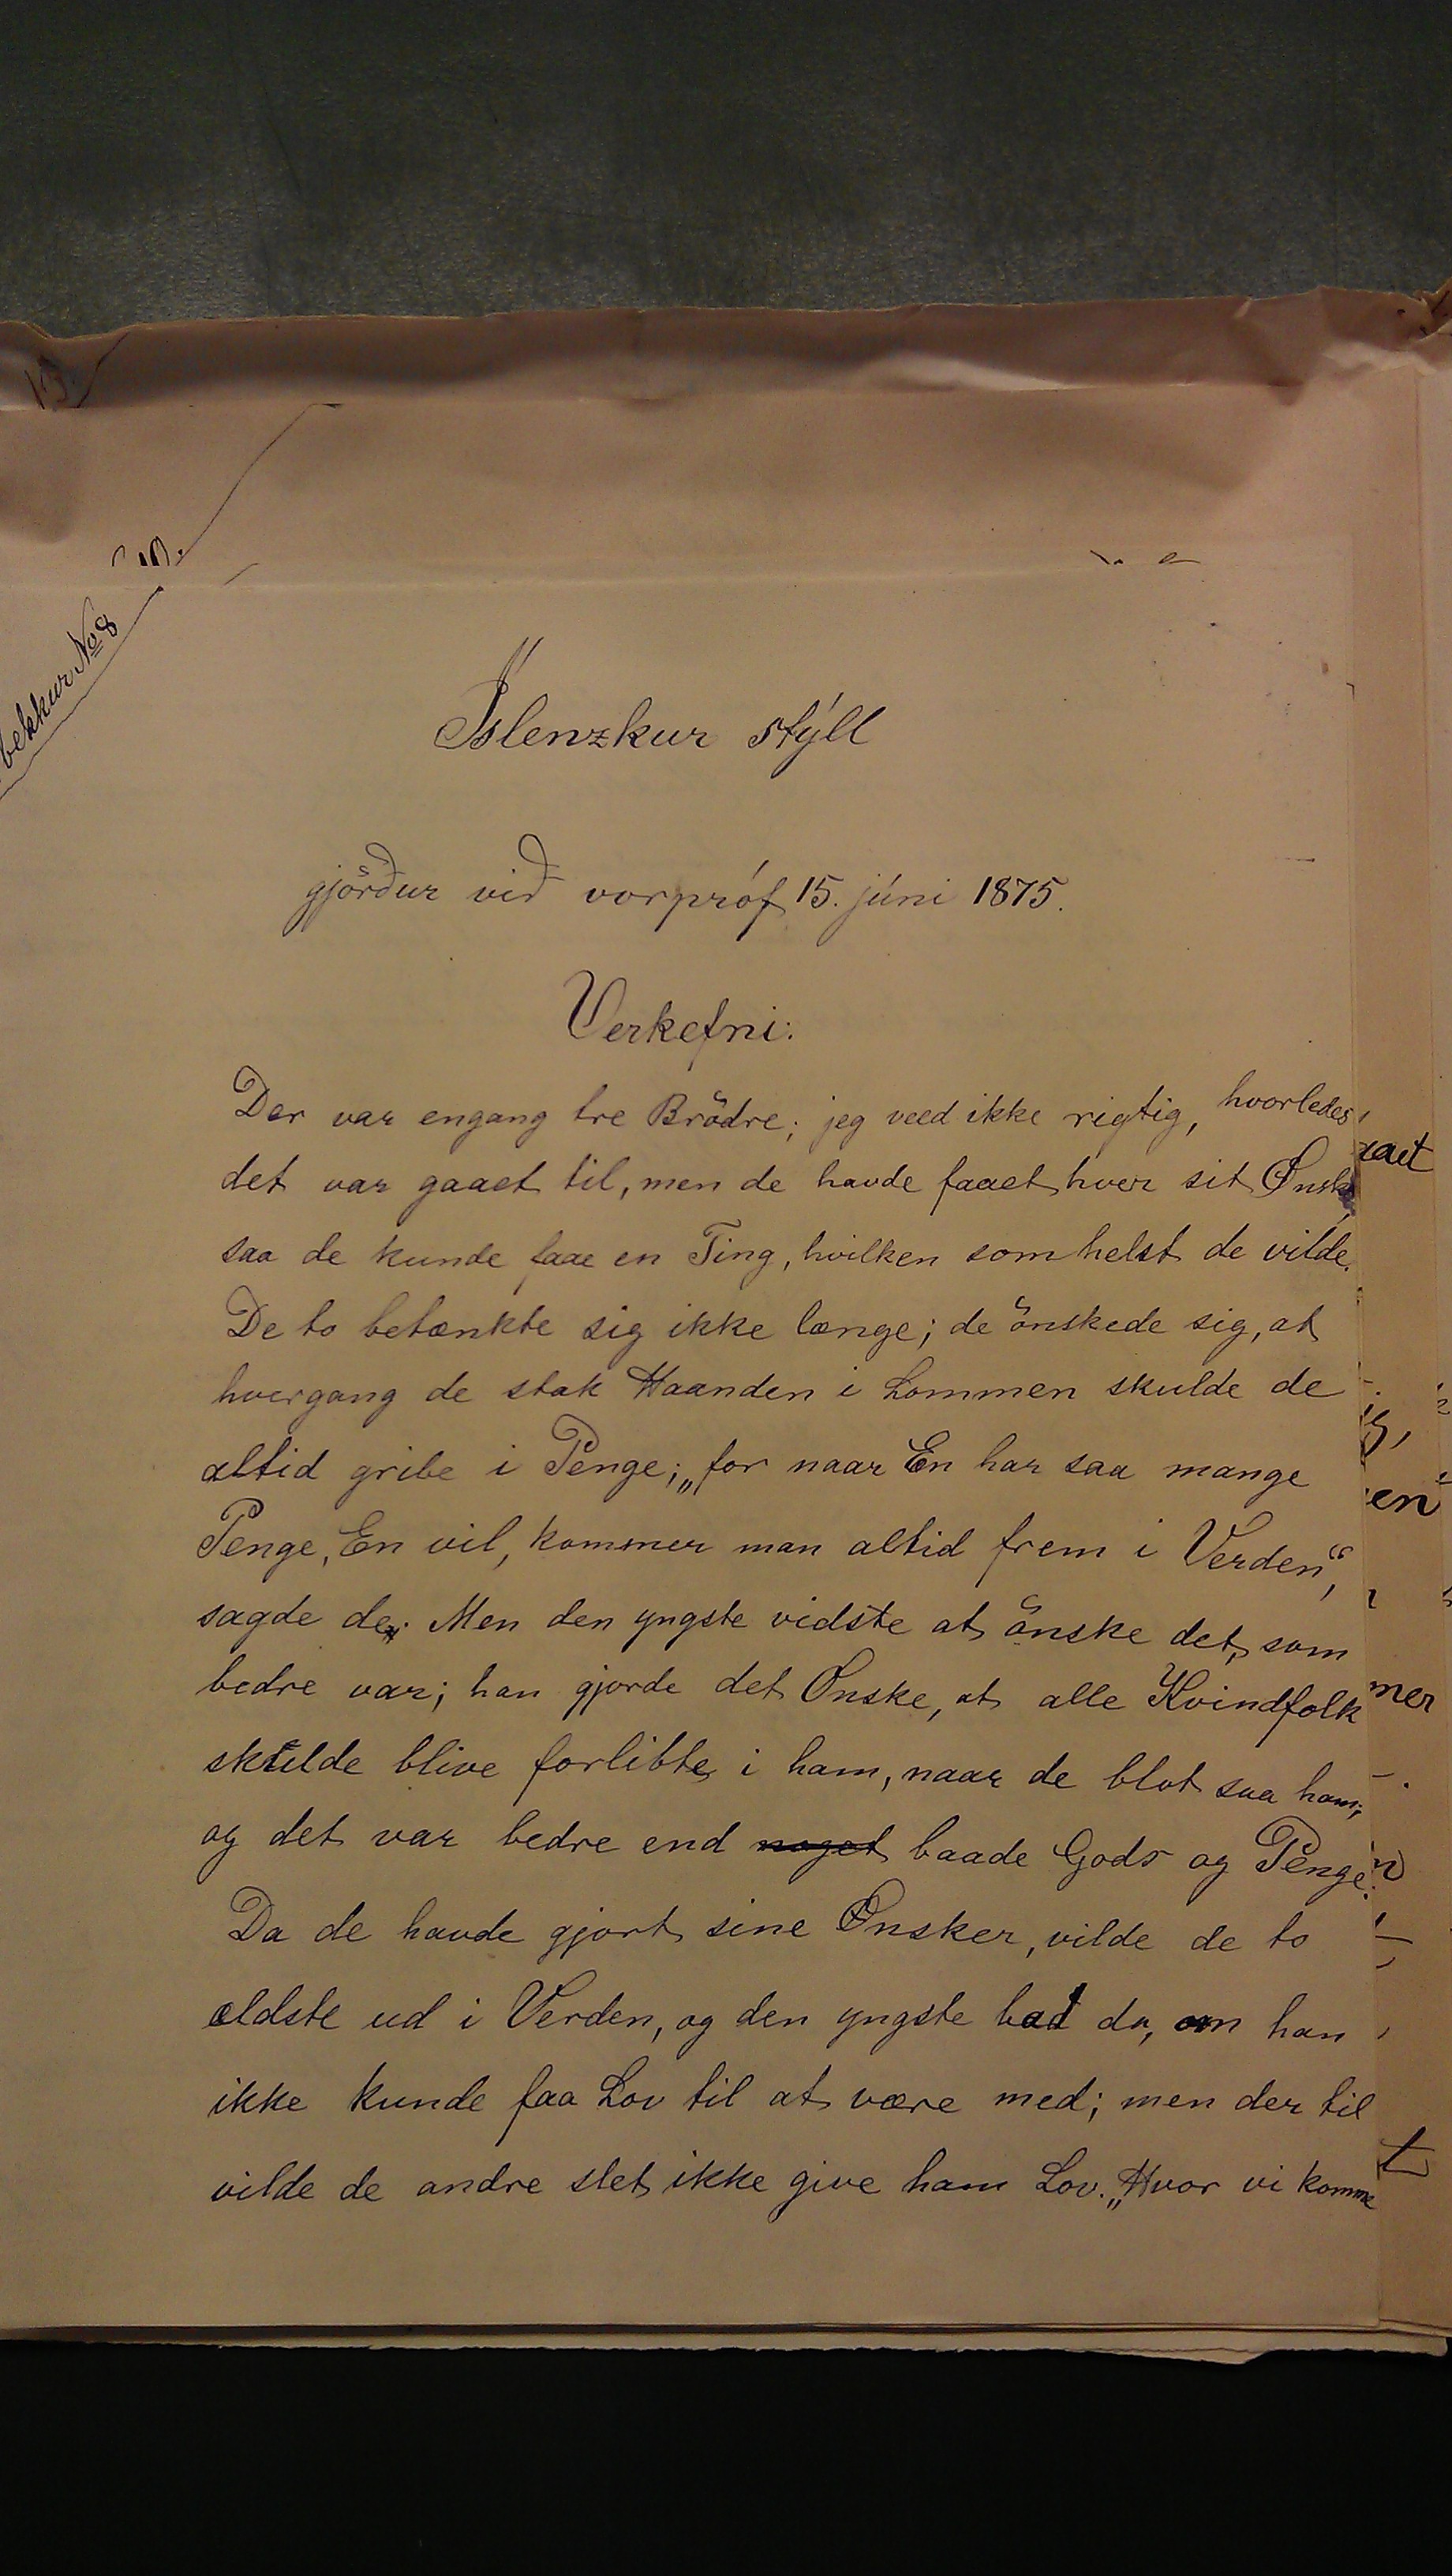 bekkur No 8
Íslenzkur stýll
gjörður við vorpróf 15. júni 1875.
Verkefni:
Der var engang tre Brödre; jeg veed ikke rigtig, hvorledes
det var gaaet til, men de havde faaet hver sit Ønske,
saa de kunde faae en Ting, hvilken somhelst de vilde.
De to betænkte sig ikke længe; de önskede sig, at
hvergang de stak Haanden i Lommen skulde de
altid gribe i Penge; „for naar En har saa mange
Penge, En vil, kommer man altid frem i Verden“,
sagde de. Men den yngste vidste at önske det, som
bedre var; han gjorde det Ønske, at alle Kvindfolk
skulde blive forlibte i ham, naar de blot saa ham;
og det var bedre end noget baade Gods og Penge.
Da de havde gjort sine Ønsker, vilde de to
ældste ud i Verden, og den yngste bad da, om han
ikke kunde faa Lov til at være med; men der til
vilde de andre slet ikke give ham Lov. „Hvor vi komme
en
mer
t